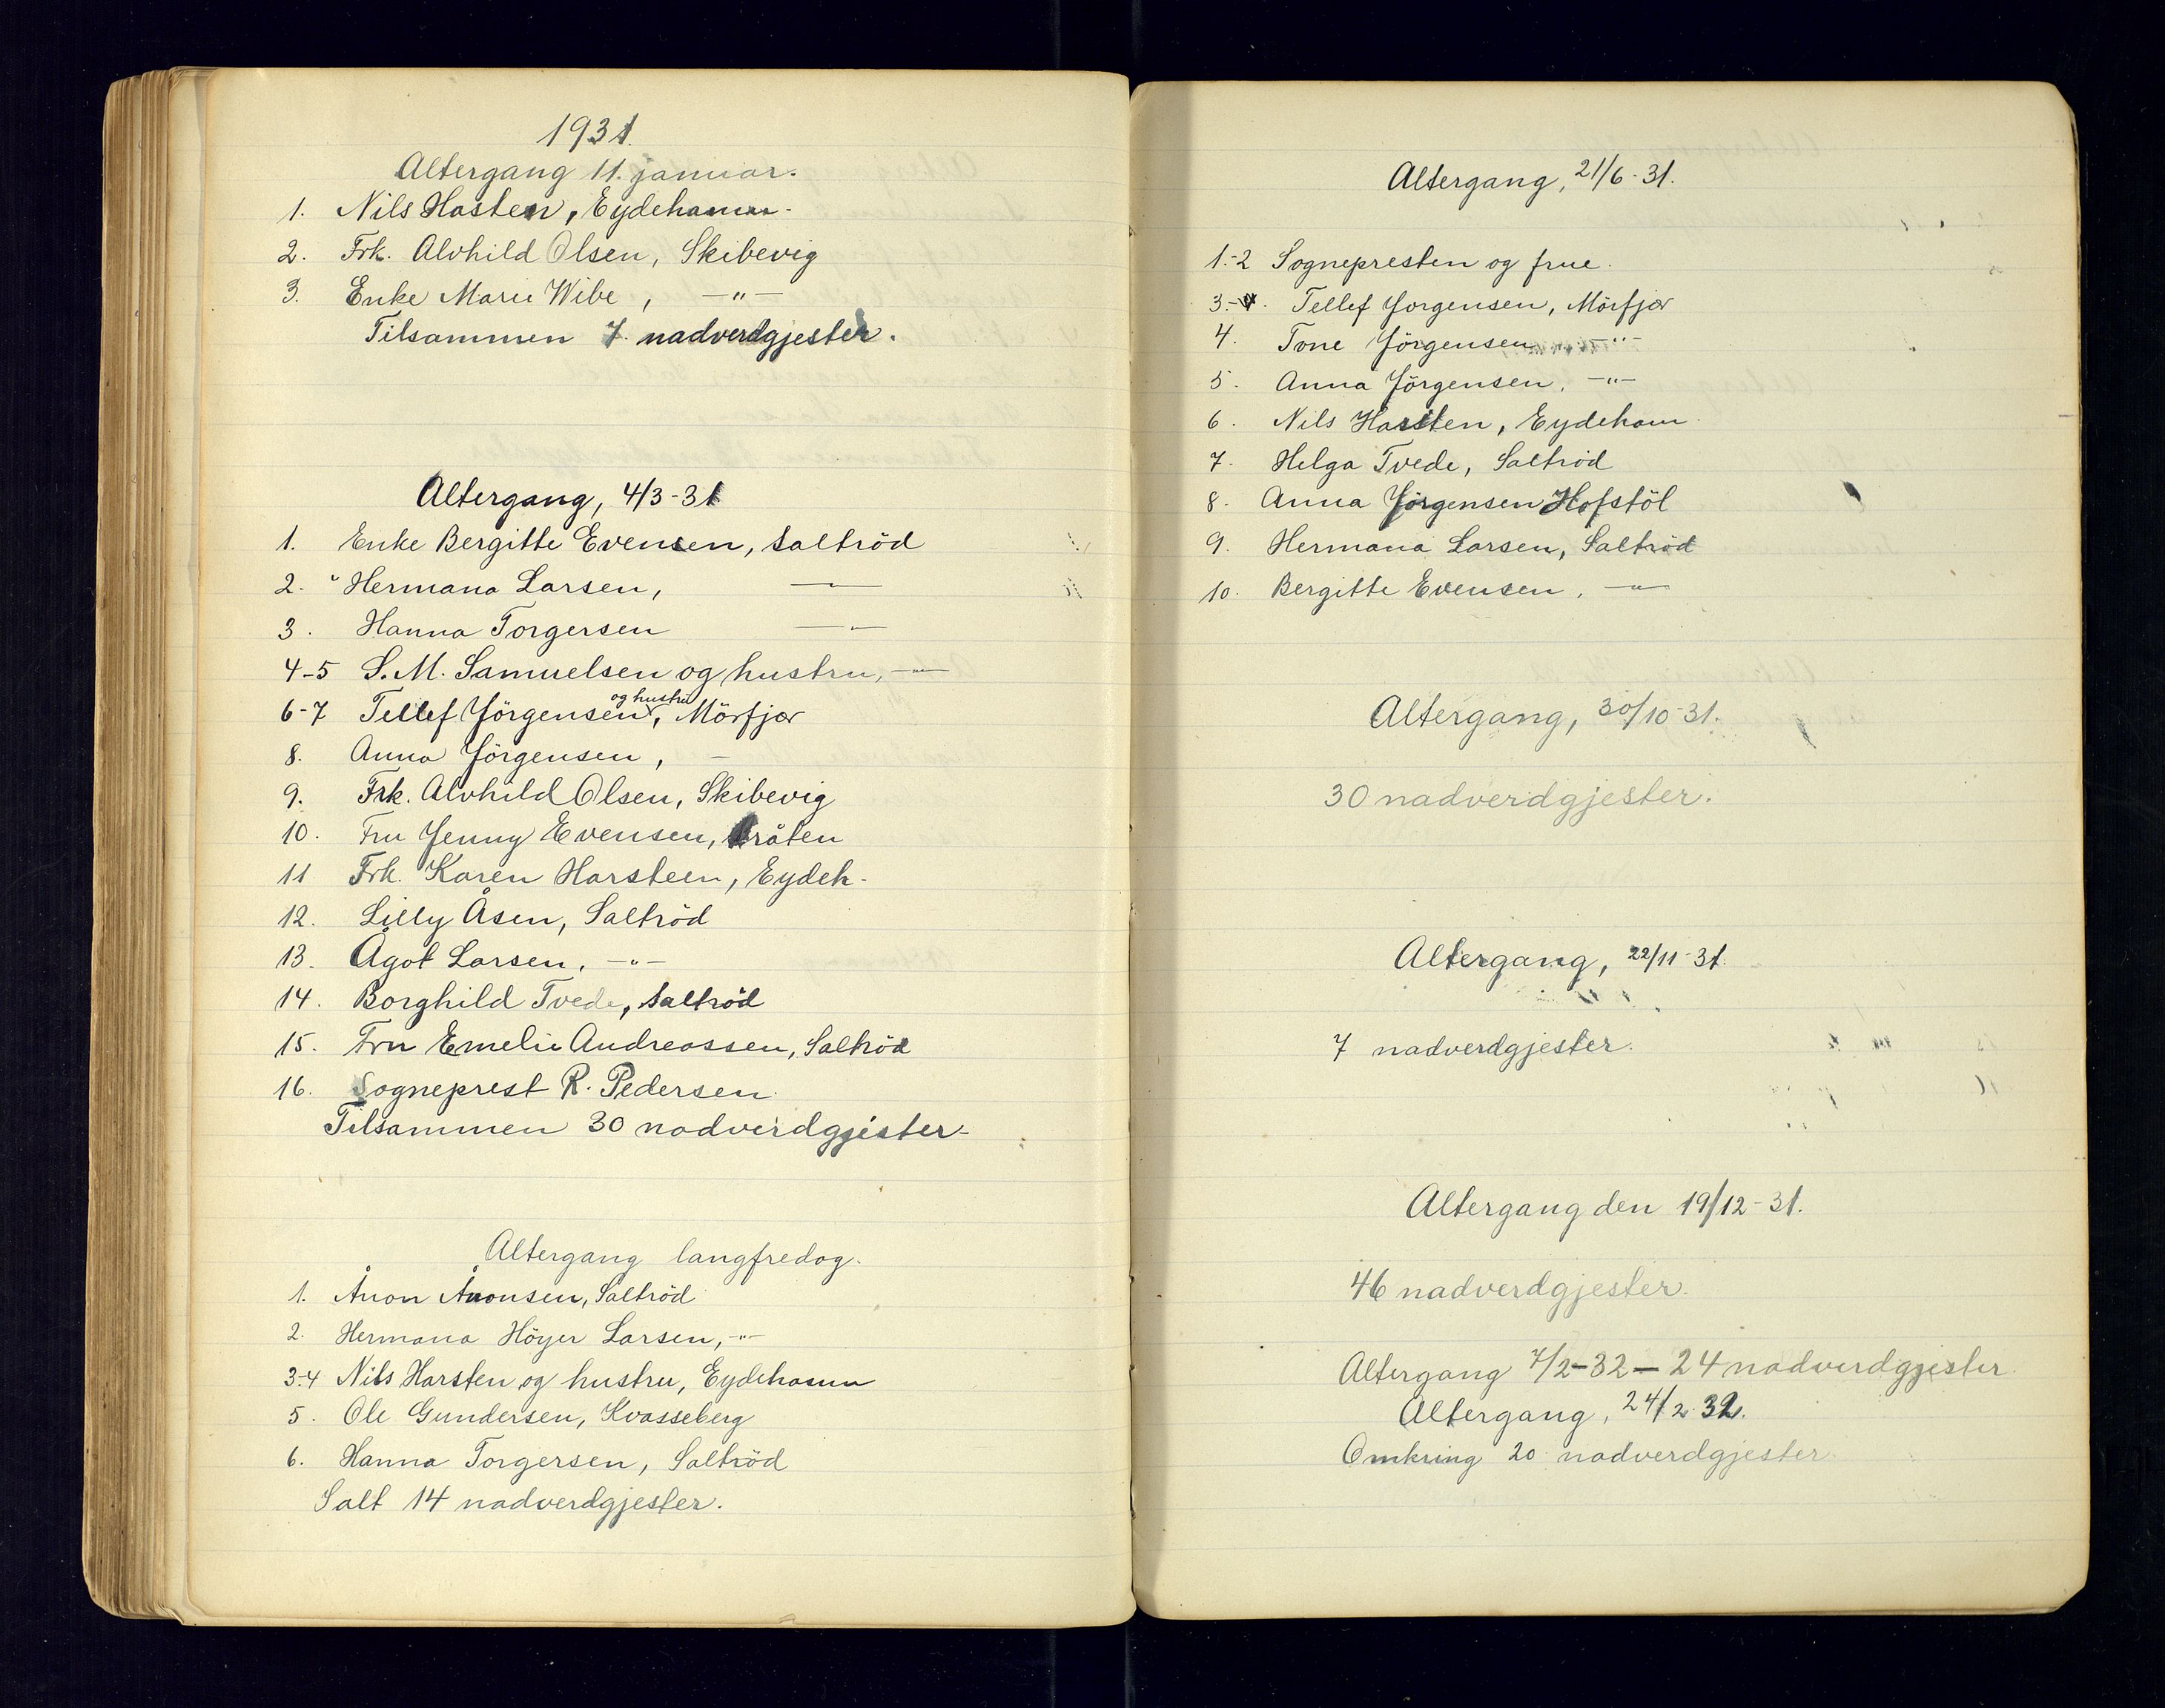 1931.
Altergang 11. januar.
1. Nils Hasten, Eydehamn.
2. Frk. Alvhild Olsen, Skibevig
3. Enke Marie Wibe, —"—
Tilsammen 7 nadverdgjester.
Altergang, 4/3-31
1. Enke Bergitte Evensen, Saltröd
2. " Hermana Larsen, —"—
3. Hanna Torgersen —"—
4-5 S. M. Samuelsen og hustru, —"—
6-7 Tellef Jörgensen og hustru, Mörfjær
8. Anna Jörgensen, —
9. Frk. Alvhild Olsen, Skibevig
10. Fru Jenny Evensen, Bråten
11 Frk. Karen Harsteen, Eydeh.
12. Lilly Åsen, Saltröd
13. Ågot Larsen, —"—
14. Borghild Tvede, Saltröd
15. Fru Emelie Andreassen, Saltröd
16. Sogneprest R. Pedersen.
Tilsammen 30 nadverdgjester.
Altergang langfredag.
1. Ånon Ånonsen, Saltröd
2. Hermana Höyer Larsen, —"—
3-4 Nils Harsten og hustru, Eydehamn
5. Ole Gundersen, Kvasseberg
6. Hanna Torgersen, Saltröd
Salt 14 nadverdgjester.
Altergang, 21/6-31.
1.-2 Sognepresten og frue.
3.- Tellef Jorgensen, Mörfjær
4. Tone Jörgensen —"—
5. Anna Jörgensen, —"—
6. Nils Harsten, Eydehamn.
7. Helga Tvede, Saltröd
8. Anna Jörgensen Hofstöl
9. Hermana Larsen, Saltröd
10. Bergitte Evensen, —"—
Altergang, 30/10-31.
30 nadverdgjester.
Altergang, 22/11-31.
7 nadverdgjester.
Altergang den 19/12-31.
46 nadverdgjester.
Altergang 7/2-32 — 24 nadverdgjester.
Altergang, 24/2 32.
Omkring 20 nadverdgjester.